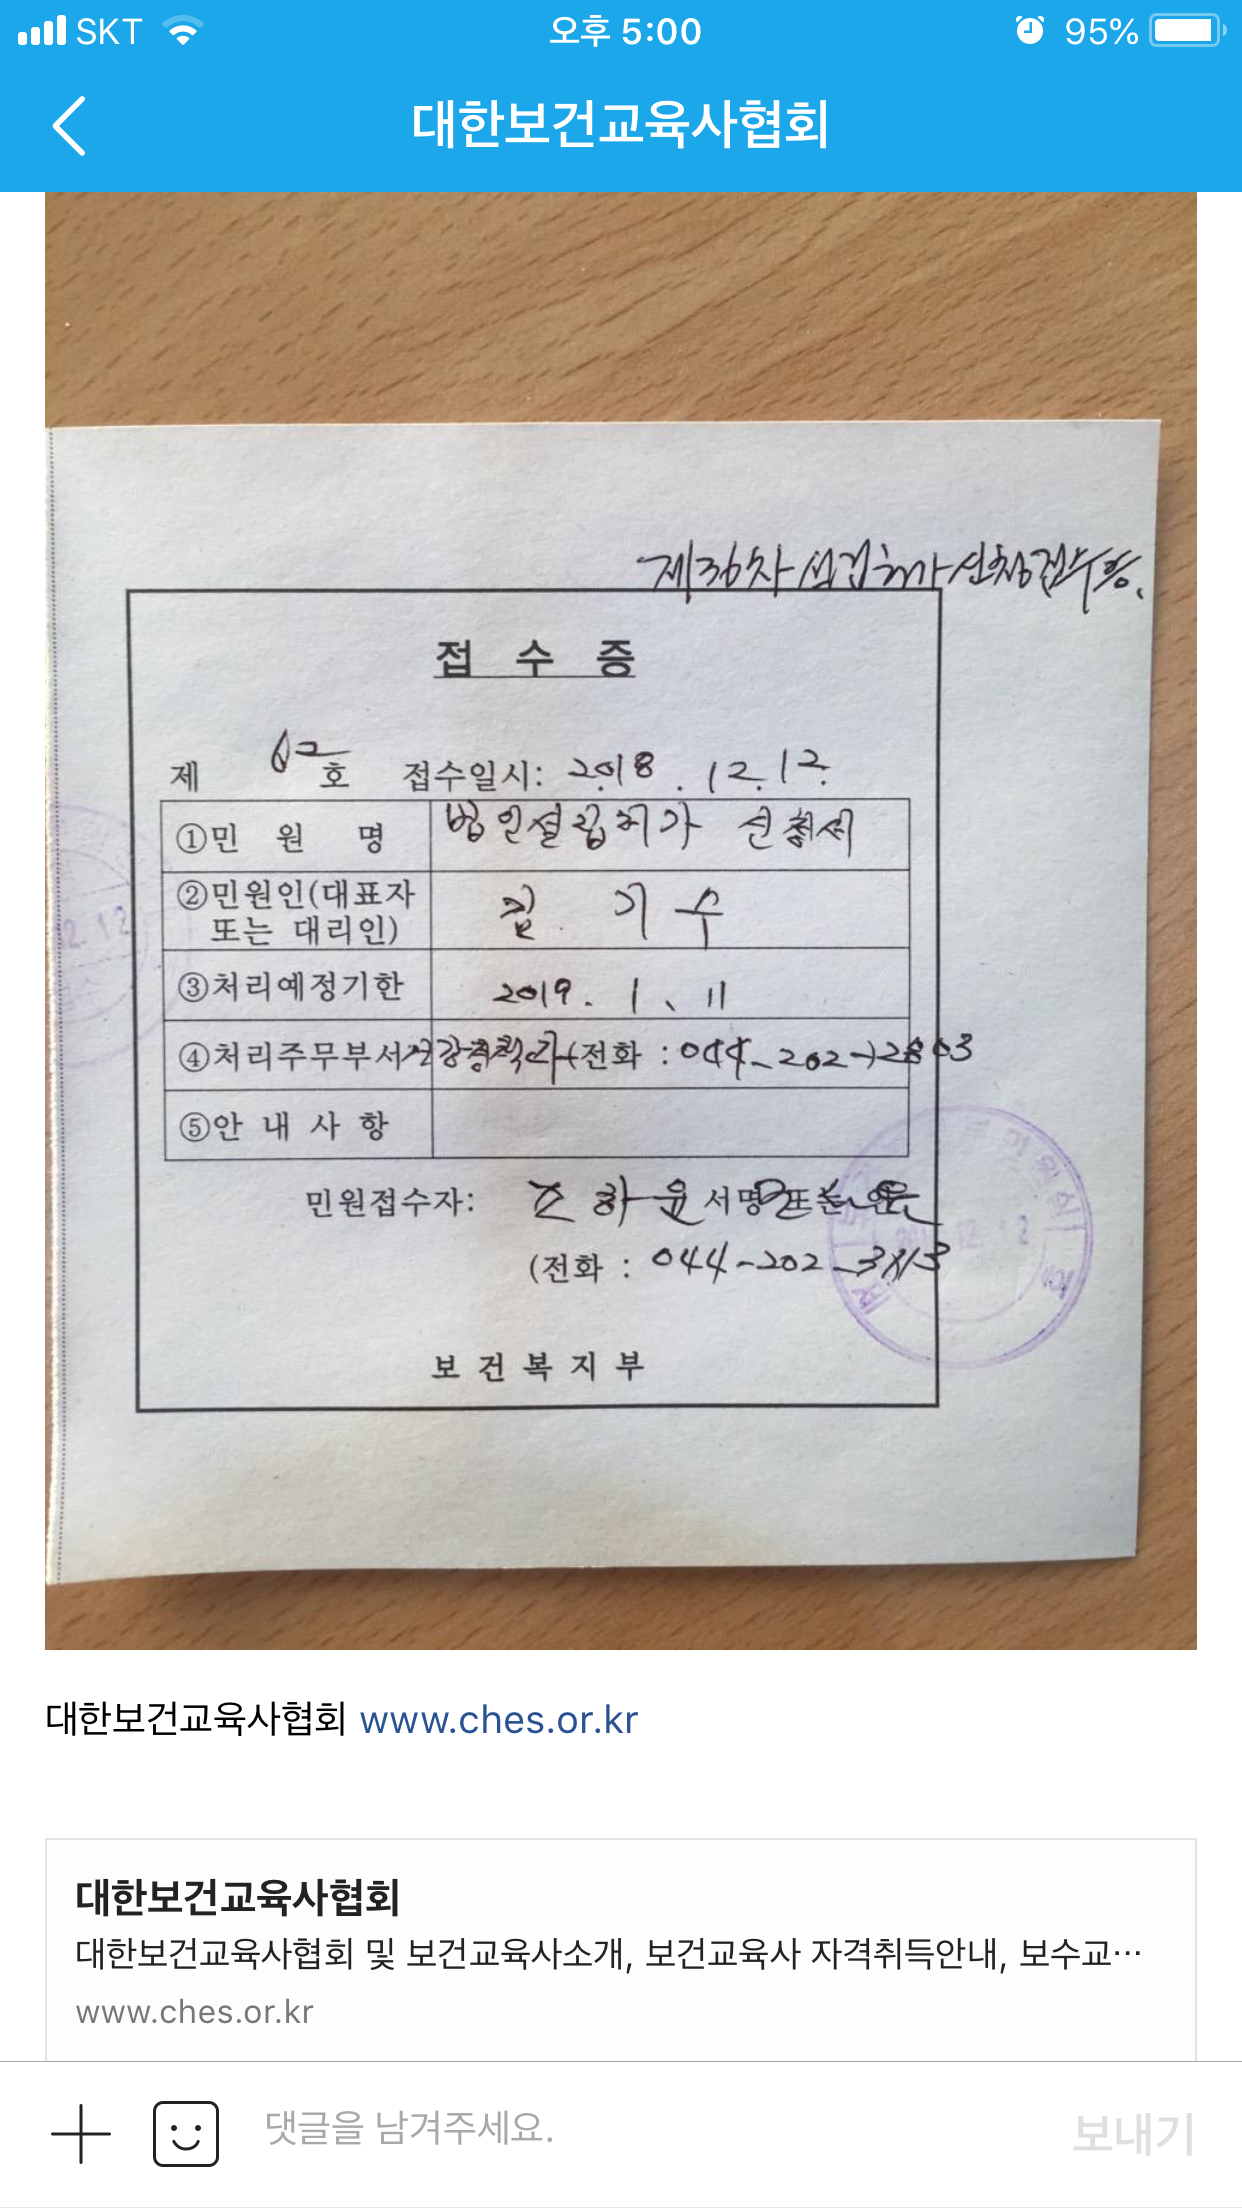 SKT 오후 5:00 95%
대한보건교육사협회
제36차 설립허가신청접수증.
접 수 증
제 62 호 접수일시: 2018. 12. 12.
①민 원 명 법인설립허가 신청서
②민원인(대표자 또는 대리인) 김 기 수
③처리예정기한 2019. 1. 11
④처리주무부서 건강정책과 (전화 : 044-202-2803
⑤안 내 사 항
민원접수자: 조하윤 서명 또는
(전화 : 044-202-
보 건 복 지 부
대한보건교육사협회 www.ches.or.kr
대한보건교육사협회
대한보건교육사협회 및 보건교육사소개, 보건교육사 자격취득안내, 보수교…
www.ches.or.kr
댓글을 남겨주세요. 보내기